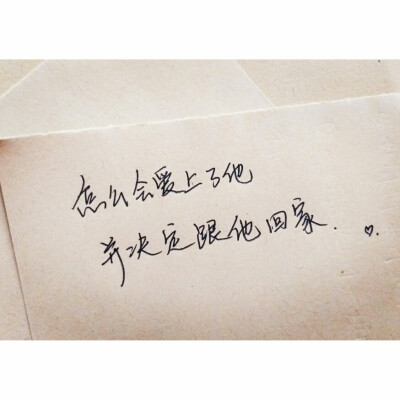 怎么会爱上了他
并决定跟他回家. ♡.